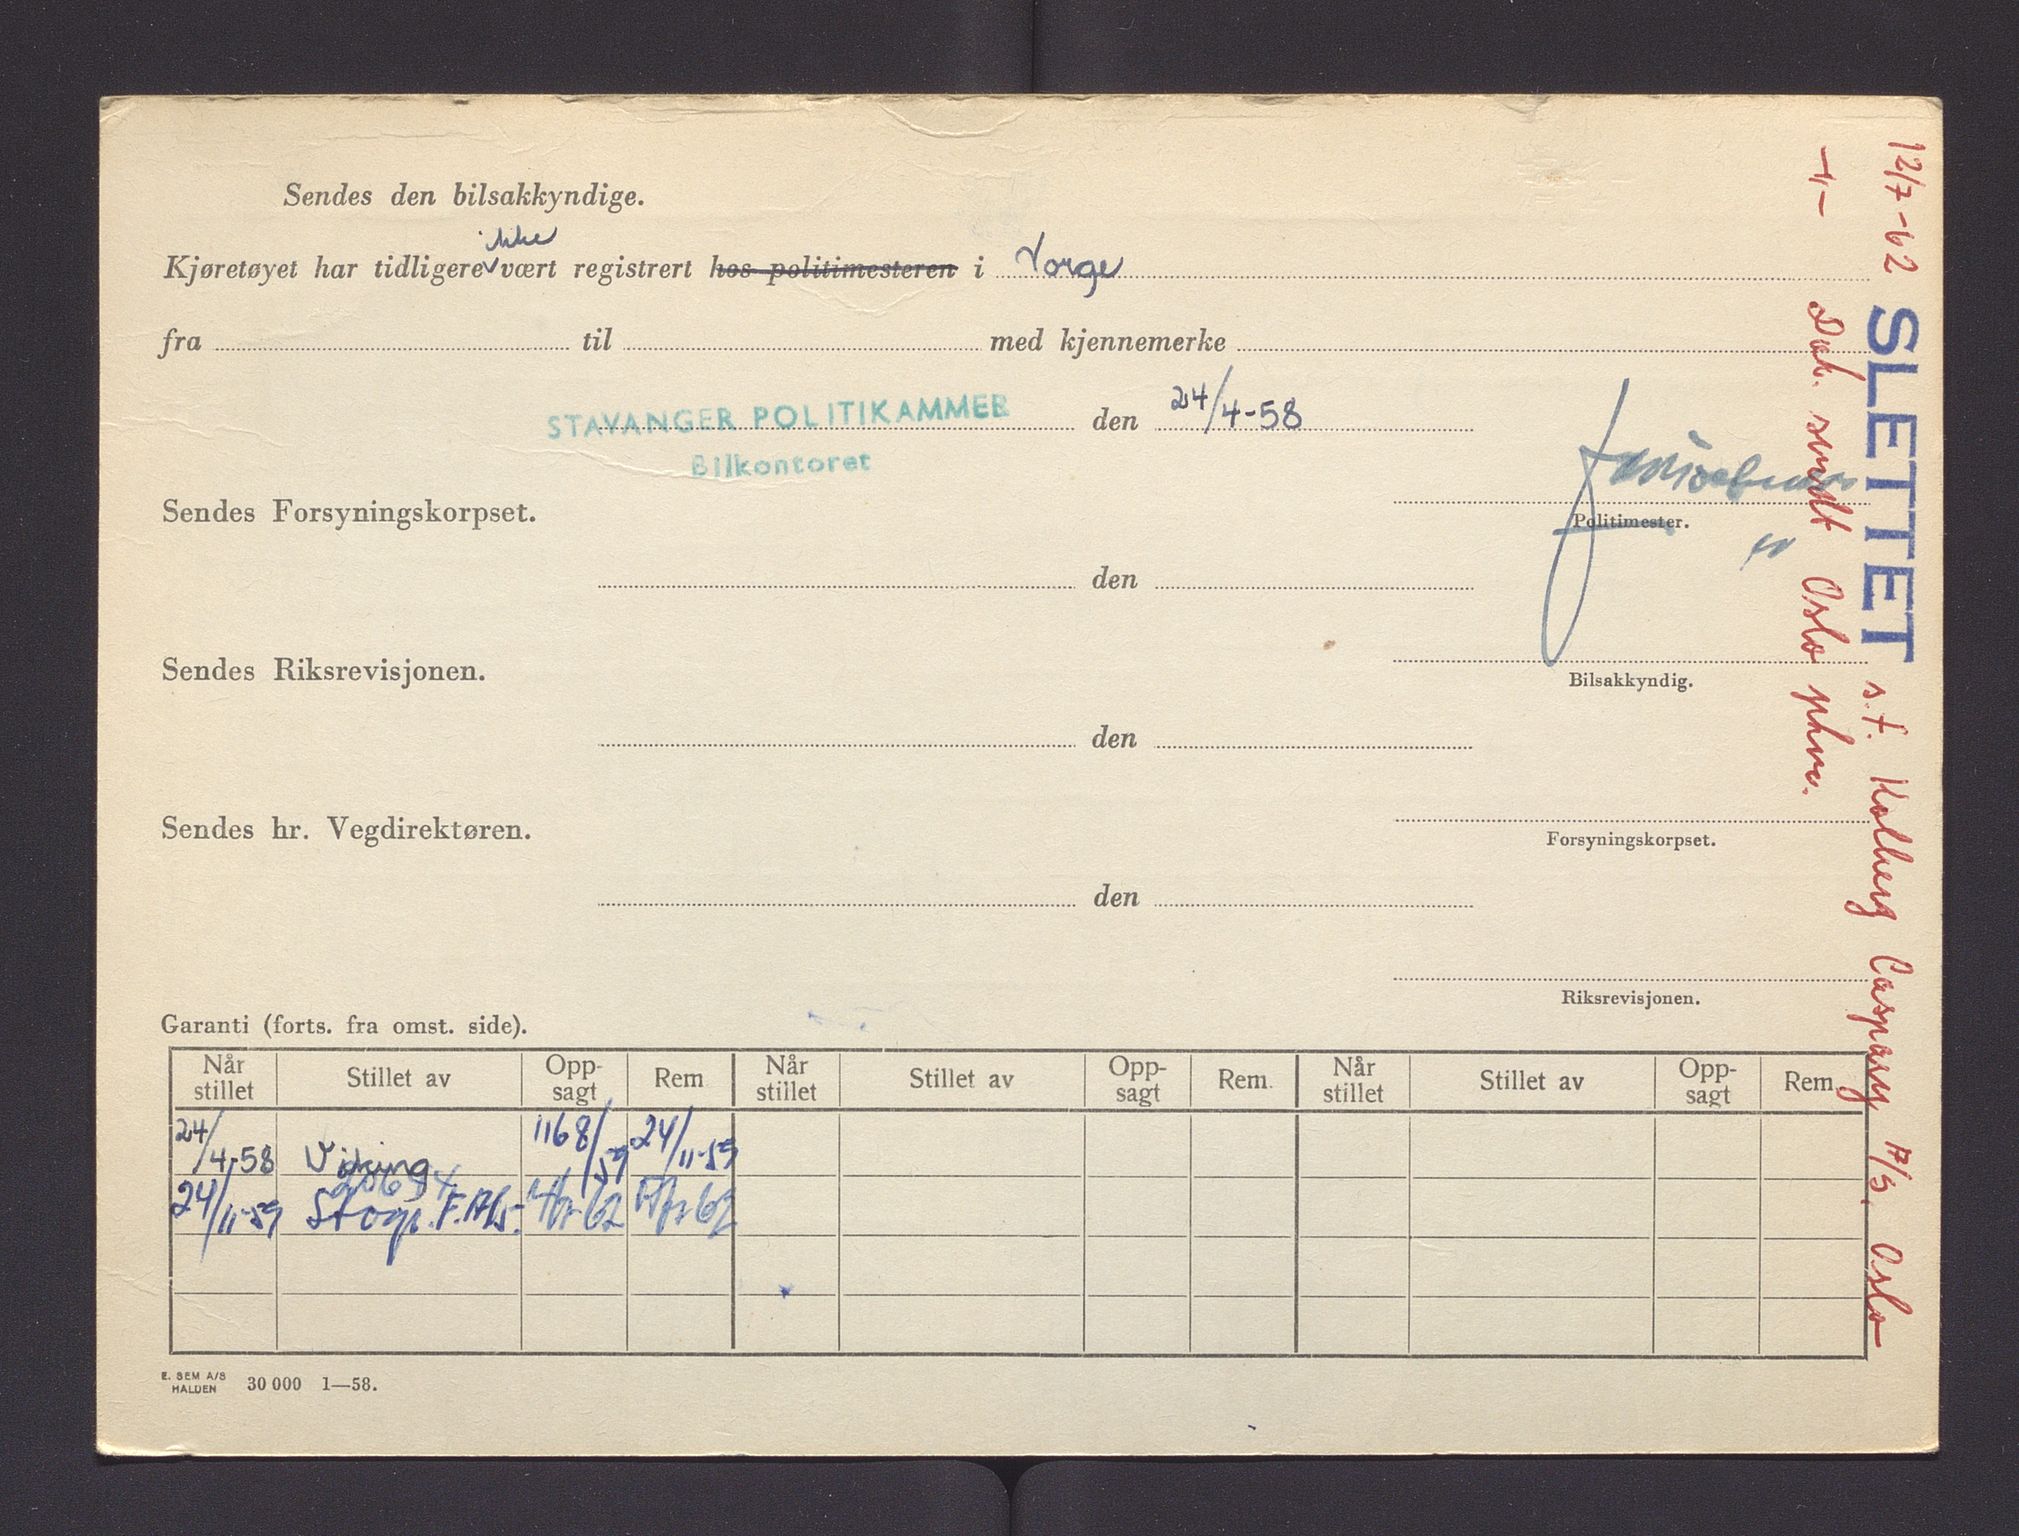 Sendes den bilsakkyndige.
ikke
Kjøretøyet har tidligere vært registrert hos politimesteren i Norge
fra til med kjennemerke
STAVANGER POLITIKAMMER den 24/4-58
Bilkontoret
Sendes Forsyningskorpset.
Politimester.
den
Sendes Riksrevisjonen.
Bilsakkyndig.
den
Sendes hr. Vegdirektøren.
Forsyningskorpset.
den
Riksrevisjonen.
Garanti (forts. fra omst. side).
Når stillet Stillet av Opp-sagt Rem Når stillet Stillet av Opp-sagt Rem. Når stillet Stillet av Opp-sagt Rem.
24/4-58 Viking 1168/59 24/11-59
24/11-59 62 62
E. SEM A/S
HALDEN 30 000 1—58.
12/7-62 SLETTET s.f. Kolberg Caspary A/S, Oslo
-"- Dok. sendt Oslo